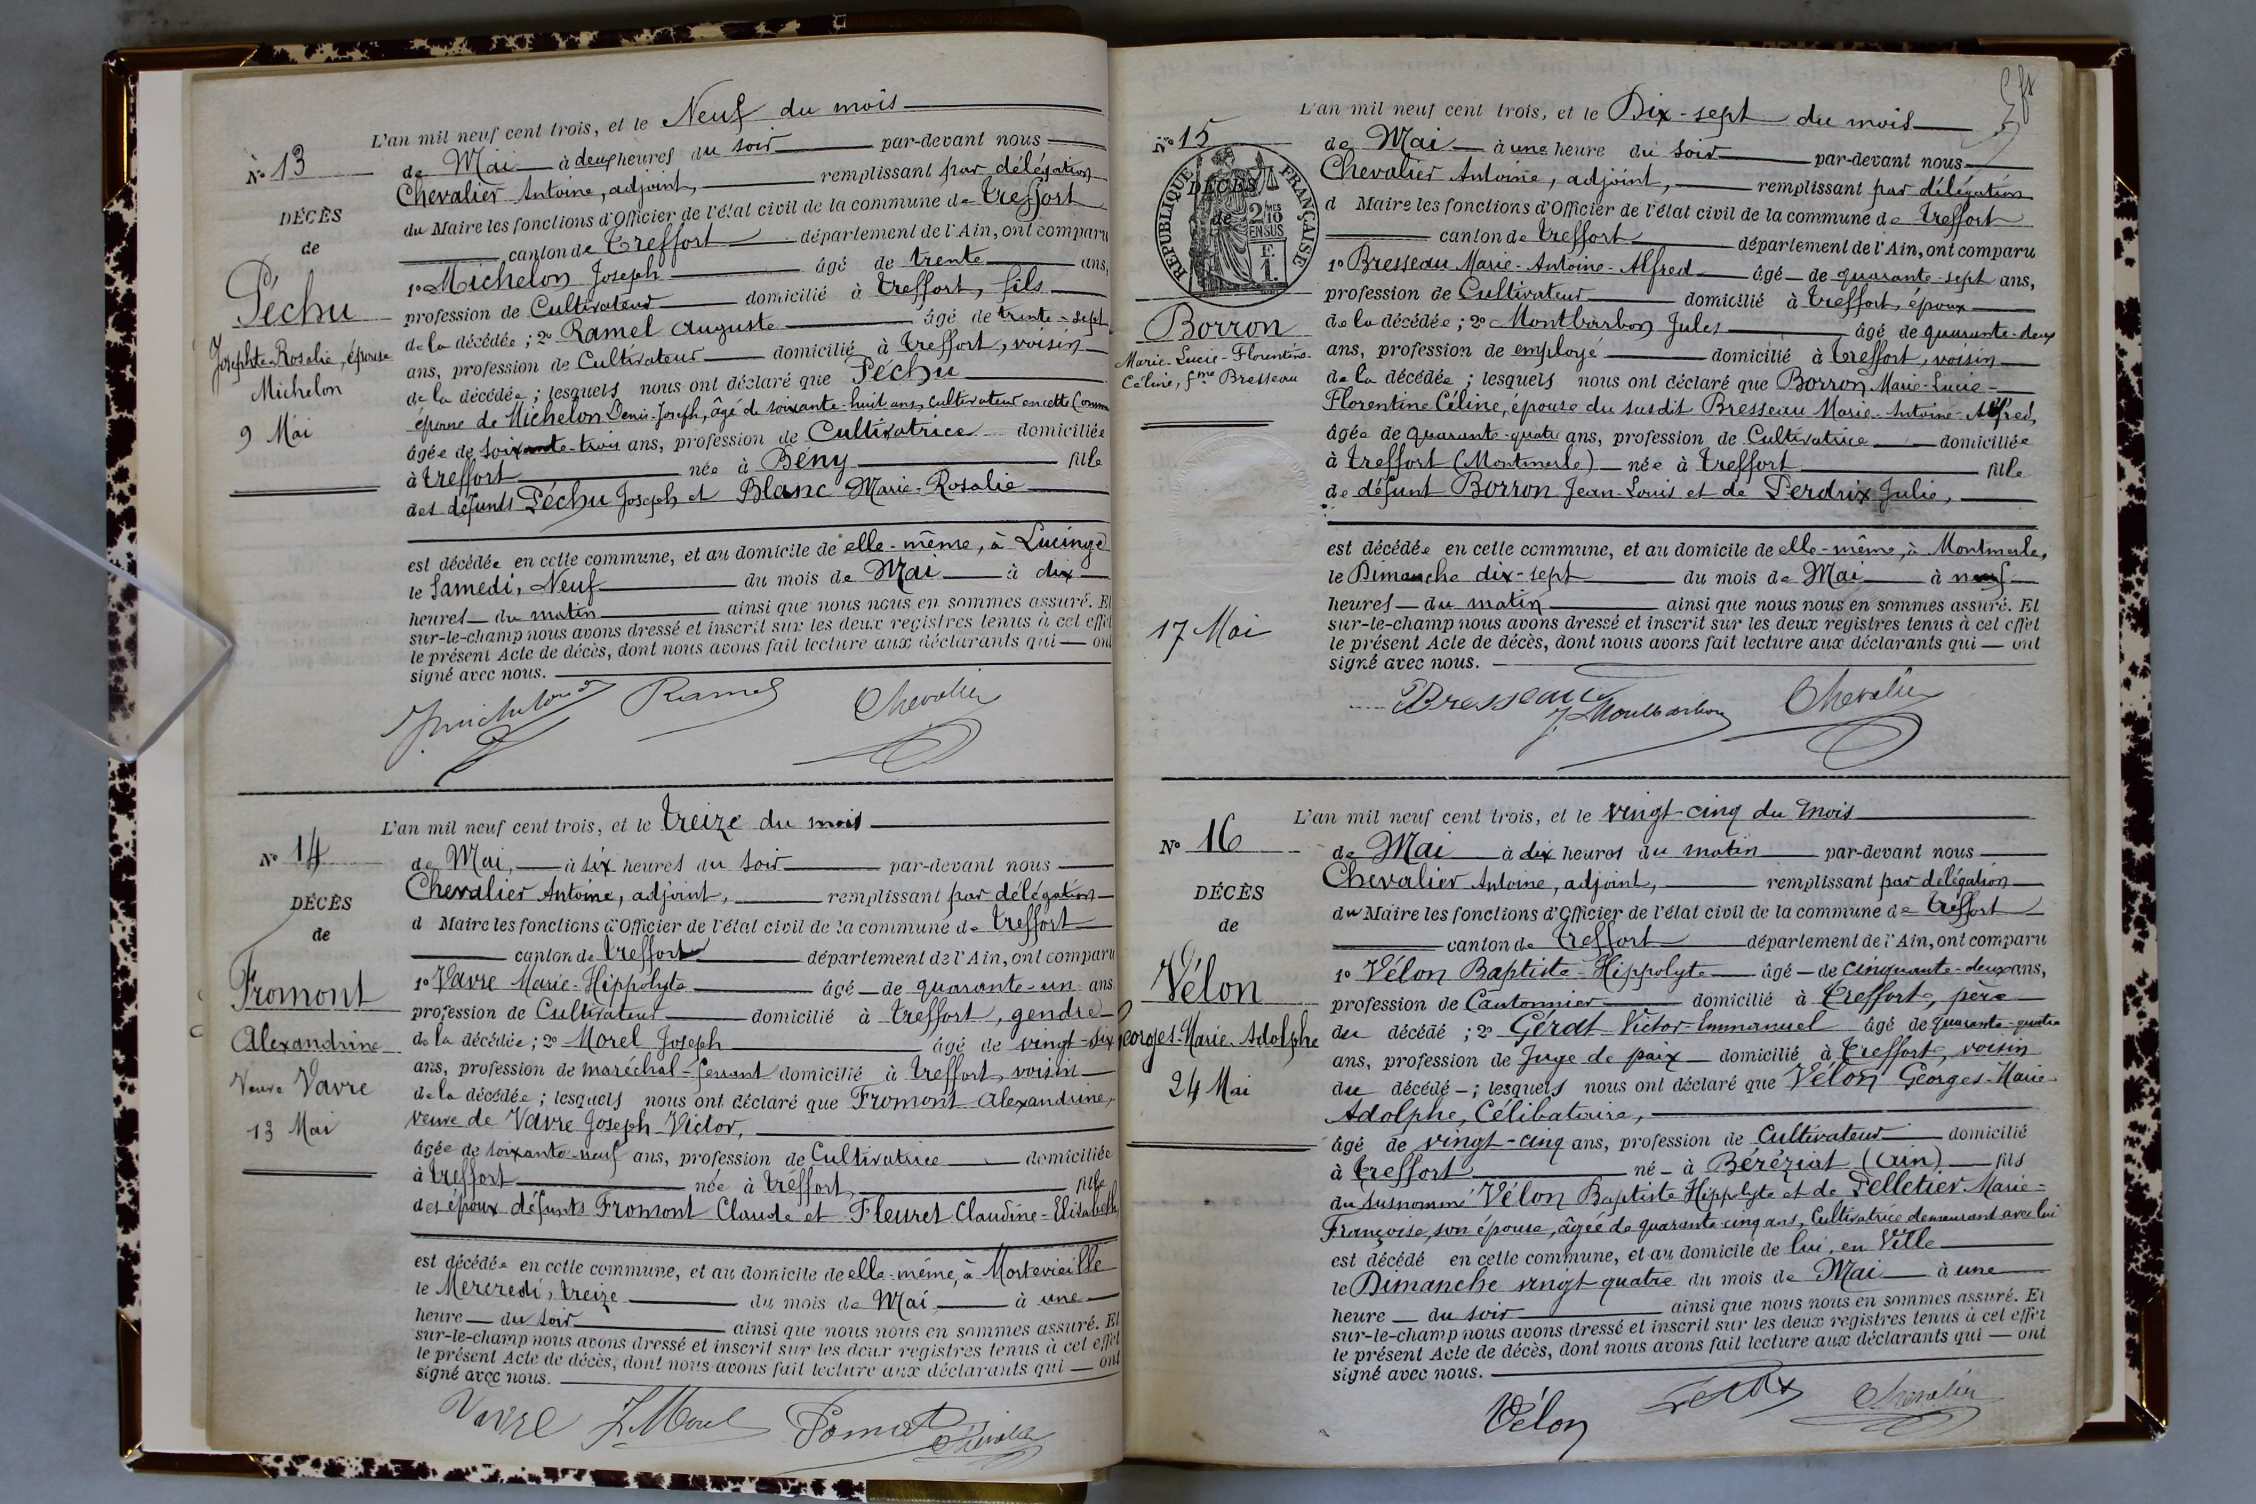 L'an mil neuf cent trois, et le Neuf du mois
N° 13
de Mai à deux heures du soir par-devant nous
Chevalier Antoine, adjoint, remplissant par délégation
DÉCÈS
du Maire les fonctions d'Officier de l'état civil de la commune de Treffort
de
canton de Treffort département de l'Ain, ont comparu
1° Michelon Joseph âgé de trente ans,
Péchu
profession de Cultivateur domicilié à Treffort, fils
de la décédée ; 2° Ramel Auguste âgé de trente-sept
Josephte-Rosalie, épouse
ans, profession de Cultivateur domicilié à Treffort, voisin
Michelon
de la décédée ; lesquels nous ont déclaré que Péchu
épouse de Michelon Denis-Joseph, âgé de soixante-huit ans, cultivateur en cette Commu
9 Mai
âgée de soixante-trois ans, profession de Cultivatrice domiciliée
à Treffort née à Bény fille
des défunts Péchu Joseph et Blanc Marie-Rosalie
est décédée en cette commune, et au domicile de elle-même, à Lucinge
le Samedi, Neuf du mois de Mai à dix
heures du matin ainsi que nous nous en sommes assuré. Et
sur-le-champ nous avons dressé et inscrit sur les deux registres tenus à cet effet
le présent Acte de décès, dont nous avons fait lecture aux déclarants qui ont
signé avec nous.
Ramel Chevalier
L'an mil neuf cent trois, et le treize du mois
N° 14
de Mai, à six heures du soir par-devant nous
Chevalier Antoine, adjoint, remplissant par délégation
DÉCÈS
d Maire les fonctions d'Officier de l'état civil de la commune de Treffort
de
canton de Treffort département de l'Ain, ont comparu
Fromont
1° Vavre Marie-Hippolyte âgé de quarante-un ans
profession de Cultivateur domicilié à Treffort, gendre
Alexandrine
de la décédée ; 2° Morel Joseph âgé de vingt-six
Veuve Vavre
ans, profession de maréchal-ferrant domicilié à Treffort, voisin
de la décédée ; lesquels nous ont déclaré que Fromont Alexandrine,
13 Mai
veuve de Vavre Joseph-Victor,
âgée de soixante-neuf ans, profession de Cultivatrice domiciliée
à Treffort née à Treffort, fille
des époux défunts Fromont Claude et Fleuret Claudine-Elisabeth,
est décédée en cette commune, et au domicile de elle-même, à Mortevieille
le Mercredi, treize du mois de Mai à une
heure du soir ainsi que nous nous en sommes assuré. Et
sur-le-champ nous avons dressé et inscrit sur les deux registres tenus à cet effet
le présent Acte de décès, dont nous avons fait lecture aux déclarants qui ont
signé avec nous.
Vavre J. Morel Chevalier
L'an mil neuf cent trois, et le Dix-sept du mois
N° 15
de Mai à une heure du soir par-devant nous
Chevalier Antoine, adjoint, remplissant par délégation
DÉCÈS
de
RÉPUBLIQUE FRANÇAISE
2 MES
10
EN SUS
d Maire les fonctions d'Officier de l'état civil de la commune de Treffort
canton de Treffort département de l'Ain, ont comparu
1° Bresseau Marie-Antoine-Alfred âgé de quarante-sept ans,
profession de Cultivateur domicilié à Treffort, époux
Borron
de la décédée ; 2° Montbarbon Jules âgé de quarante-deux
Marie-Lucie-Florentine-
ans, profession de employé domicilié à Treffort, voisin
Céline, fme Bresseau
de la décédée ; lesquels nous ont déclaré que Borron Marie-Lucie-
Florentine Céline, épouse du susdit Bresseau Marie-Antoine-Alfred,
âgée de quarante-quatre ans, profession de Cultivatrice domiciliée
à Treffort (Montmerle) née à Treffort fille
de défunt Borron Jean-Louis et de Perdrix Julie,
est décédée en cette commune, et au domicile de elle-même, à Montmerle,
le Dimanche dix-sept du mois de Mai à neuf
heures du matin ainsi que nous nous en sommes assuré. Et
17 Mai
sur-le-champ nous avons dressé et inscrit sur les deux registres tenus à cet effet
le présent Acte de décès, dont nous avons fait lecture aux déclarants qui ont
signé avec nous.
Bresseau J. Montbarbon Chevalier
L'an mil neuf cent trois, et le vingt-cinq du mois
N° 16
de Mai à dix heures du matin par-devant nous
Chevalier Antoine, adjoint, remplissant par délégation
DÉCÈS
du Maire les fonctions d'Officier de l'état civil de la commune de Treffort
de
canton de Treffort département de l'Ain, ont comparu
Vélon
1° Vélon Baptiste-Hippolyte âgé de cinquante-deux ans,
profession de Cantonnier domicilié à Treffort, père
Georges-Marie-Adolphe
du décédé ; 2° Gérat Victor-Emmanuel âgé de quarante-quatre
ans, profession de Juge de paix domicilié à Treffort, voisin
24 Mai
du décédé ; lesquels nous ont déclaré que Vélon Georges-Marie-
Adolphe, Célibataire,
âgé de vingt-cinq ans, profession de Cultivateur domicilié
à Treffort né à Béréziat (Ain) fils
du susnommé Vélon Baptiste Hippolyte et de Pelletier Marie-
Françoise, son épouse, âgée de quarante-cinq ans, Cultivatrice demeurant avec lui
est décédé en cette commune, et au domicile de lui, en Ville
le Dimanche vingt quatre du mois de Mai à une
heure du soir ainsi que nous nous en sommes assuré. Et
sur-le-champ nous avons dressé et inscrit sur les deux registres tenus à cet effet
le présent Acte de décès, dont nous avons fait lecture aux déclarants qui ont
signé avec nous.
Vélon Chevalier